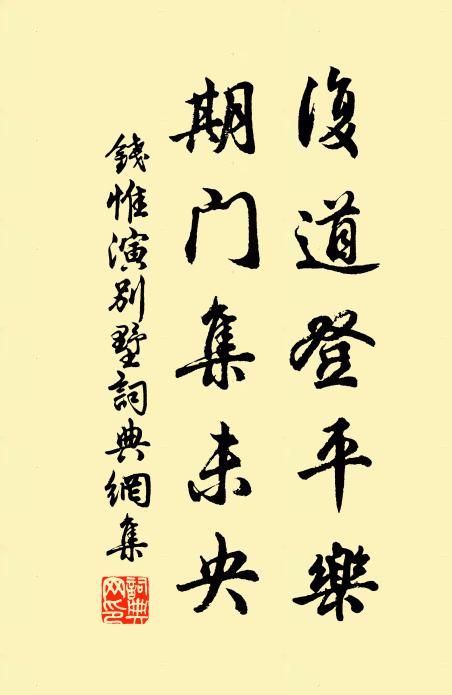 復道登平樂
期门集未央
錢惟演別墅詞典網集
詞典網印